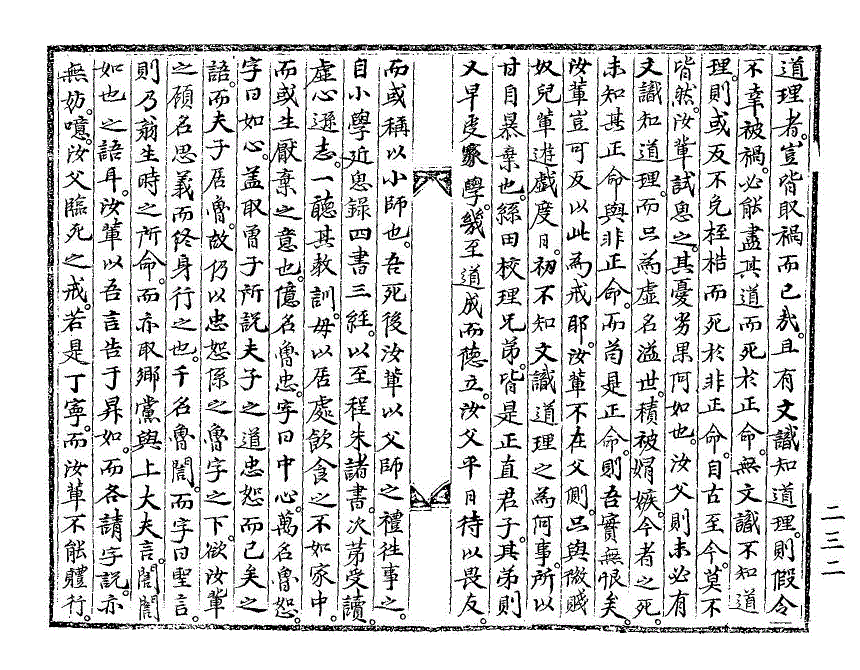 道理者。豈皆取禍而已哉。且有文識知道理。則假令
不幸被禍。必能盡其道而死於正命。無文識不知道
理。則或反不免桎梏而死於非正命。自古至今。莫不
皆然。汝輩試思之。其憂勞果何如也。汝父則未必有
文識知道理。而只爲虛名溢世。積被娟嫉。今者之死。
未知其正命與非正命。而苟是正命。則吾實無恨矣。
汝輩豈可反以此爲戒耶。汝輩不在父側。只與微賤
奴兒輩遊戲度日。初不知文識道理之爲何事。所以
甘自暴棄也。絲田校理兄弟。皆是正直君子。其弟則
又早受家學。幾至道成而德立。汝父平日待以畏友。
而或稱以小師也。吾死後汝輩以父師之禮往事之。
自小學近思錄四書三經。以至程朱諸書。次苐受讀。
虛心遜志。一聽其敎訓。毋以居處飮食之不如家中。
而或生厭棄之意也。億名魯忠。字曰中心。萬名魯恕。
字曰如心。盖取曾子所說夫子之道忠恕而已矣之
語。而夫子居魯。故仍以忠恕係之魯字之下。欲汝輩
之顧名思義而終身行之也。千名魯誾。而字曰聖言。
則乃翁生時之所命。而亦取鄕黨與上大夫言。誾誾
如也之語耳。汝輩以吾言告于昇如。而各請字說。亦
無妨。噫。汝父臨死之戒。若是丁寧。而汝輩不能體行。
二三二